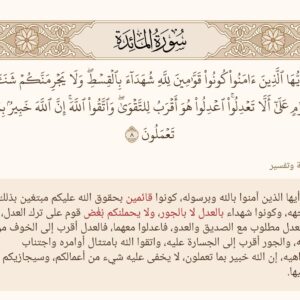 سُورَةُ المَائِدَةِ
يُّهَا ٱلَّذِينَ ءَامَنُوا۟ كُونُوا۟ قَوَّٰمِينَ لِلَّهِ شُهَدَآءَ بِٱلْقِسْطِ ۖ وَلَا يَجْرِمَنَّكُمْ شَنَـَٔا
وْمٍ عَلَىٰٓ أَلَّا تَعْدِلُوا۟ ۚ ٱعْدِلُوا۟ هُوَ أَقْرَبُ لِلتَّقْوَىٰ ۖ وَٱتَّقُوا۟ ٱللَّهَ ۚ إِنَّ ٱللَّهَ خَبِيرٌۢ بِ
تَعْمَلُونَ ٨
ة وتفسير
أيها الذين آمنوا بالله وبرسوله، كونوا قائمين بحقوق الله عليكم مبتغين بذلك
جهه، وكونوا شهداء بالعدل لا بالجور، ولا يحملنكم بُغض قوم على ترك العدل،
عدل مطلوب مع الصديق والعدو، فاعدلوا معهما، فالعدل أقرب إلى الخوف من
ه، والجور أقرب إلى الجسارة عليه، واتقوا الله بامتثال أوامره واجتناب
اهيه، إن الله خبير بما تعملون، لا يخفى عليه شيء من أعمالكم، وسيجازيكم
يها.